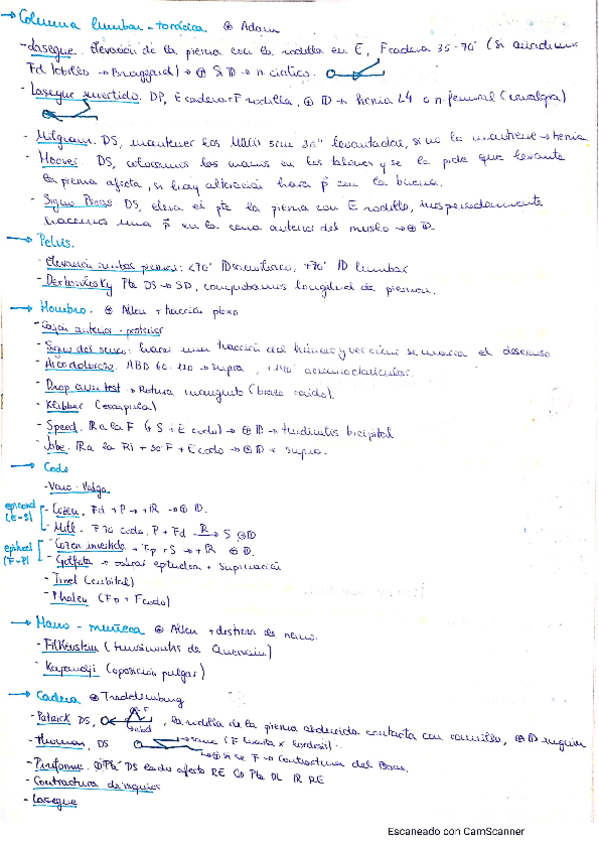 → Columna lumbar-torácica. ⊕ Adam
- Lasegue. Elevación de la pierna con la rodilla en E, F cadera 35-70° (si
Fd tobillo → Braggard) → ⊕ SI D → n. ciático.
- Lasegue invertido. DP, E cadera + F rodilla, ⊕ ID → hernia L4 o n. femoral (cruralgia)
- Milgram. DS, mantener los MMIIs 30" levantadas, si no lo mantiene → hernia
- Hoover. DS, colocamos las manos en los talones y se le pide que levante
la pierna afecta, si hay alteración hará p con la buena.
- Signo Psoas DS, eleva el pte la pierna con E rodilla, inesperadamente
hacemos una F en la cara anterior del muslo → ⊕ D.
→ Pelvis.
- Elevación ambas piernas: <70° ID sacroiliaco, +70° ID lumbar
- Pte DS → SD, comprobamos longitud de piernas.
→ Hombro. ⊕ Allen + tracción plexo
- Cajón anterior-posterior
- Signo del surco: hacer una tracción del húmero y ver cómo se marca el descenso
- Arco doloroso. ABD 60-120 → supra, +140° acromioclavicular.
- Drop arm test → Rotura manguito (brazo caído).
- Klibber (escapular)
- Speed. Ra la F (+ S + E codo) → ⊕ D → tendinitis bicipital
- Jobe. Ra la RI + 30° F + E codo → ⊕ D + supra.
→ Codo
- Varo-Valgo.
epicond (E-S)
- Cozen. Fd + P → + R → ⊕ D.
- Mill. F 90 codo, P + Fd R→ S ⊕ D
epitrocl (F-P)
- Cozen invertido. + Fp + S → + R ⊕ D.
- Golfista → sobre epitróclea + Supinación
- Tinel (cubital)
- Phalen (FD + F codo)
→ Mano-muñeca ⊕ Allen + destreza de mano.
- Filkenstein (tenosinovitis de Quervain)
- Kapandji (oposición pulgar)
→ Cadera ⊕ Tredelemburg
- Patrick DS, la rodilla de la pierna abducida contacta con camilla, ⊕ D
- Thomas, DS
→ ⊕ si se F → Contractura del Psoas.
- Piriforme. Pte DS lado afecto RE Pte DL IR RE
- Contractura de isquios
- Lasegue
Escaneado con CamScanner